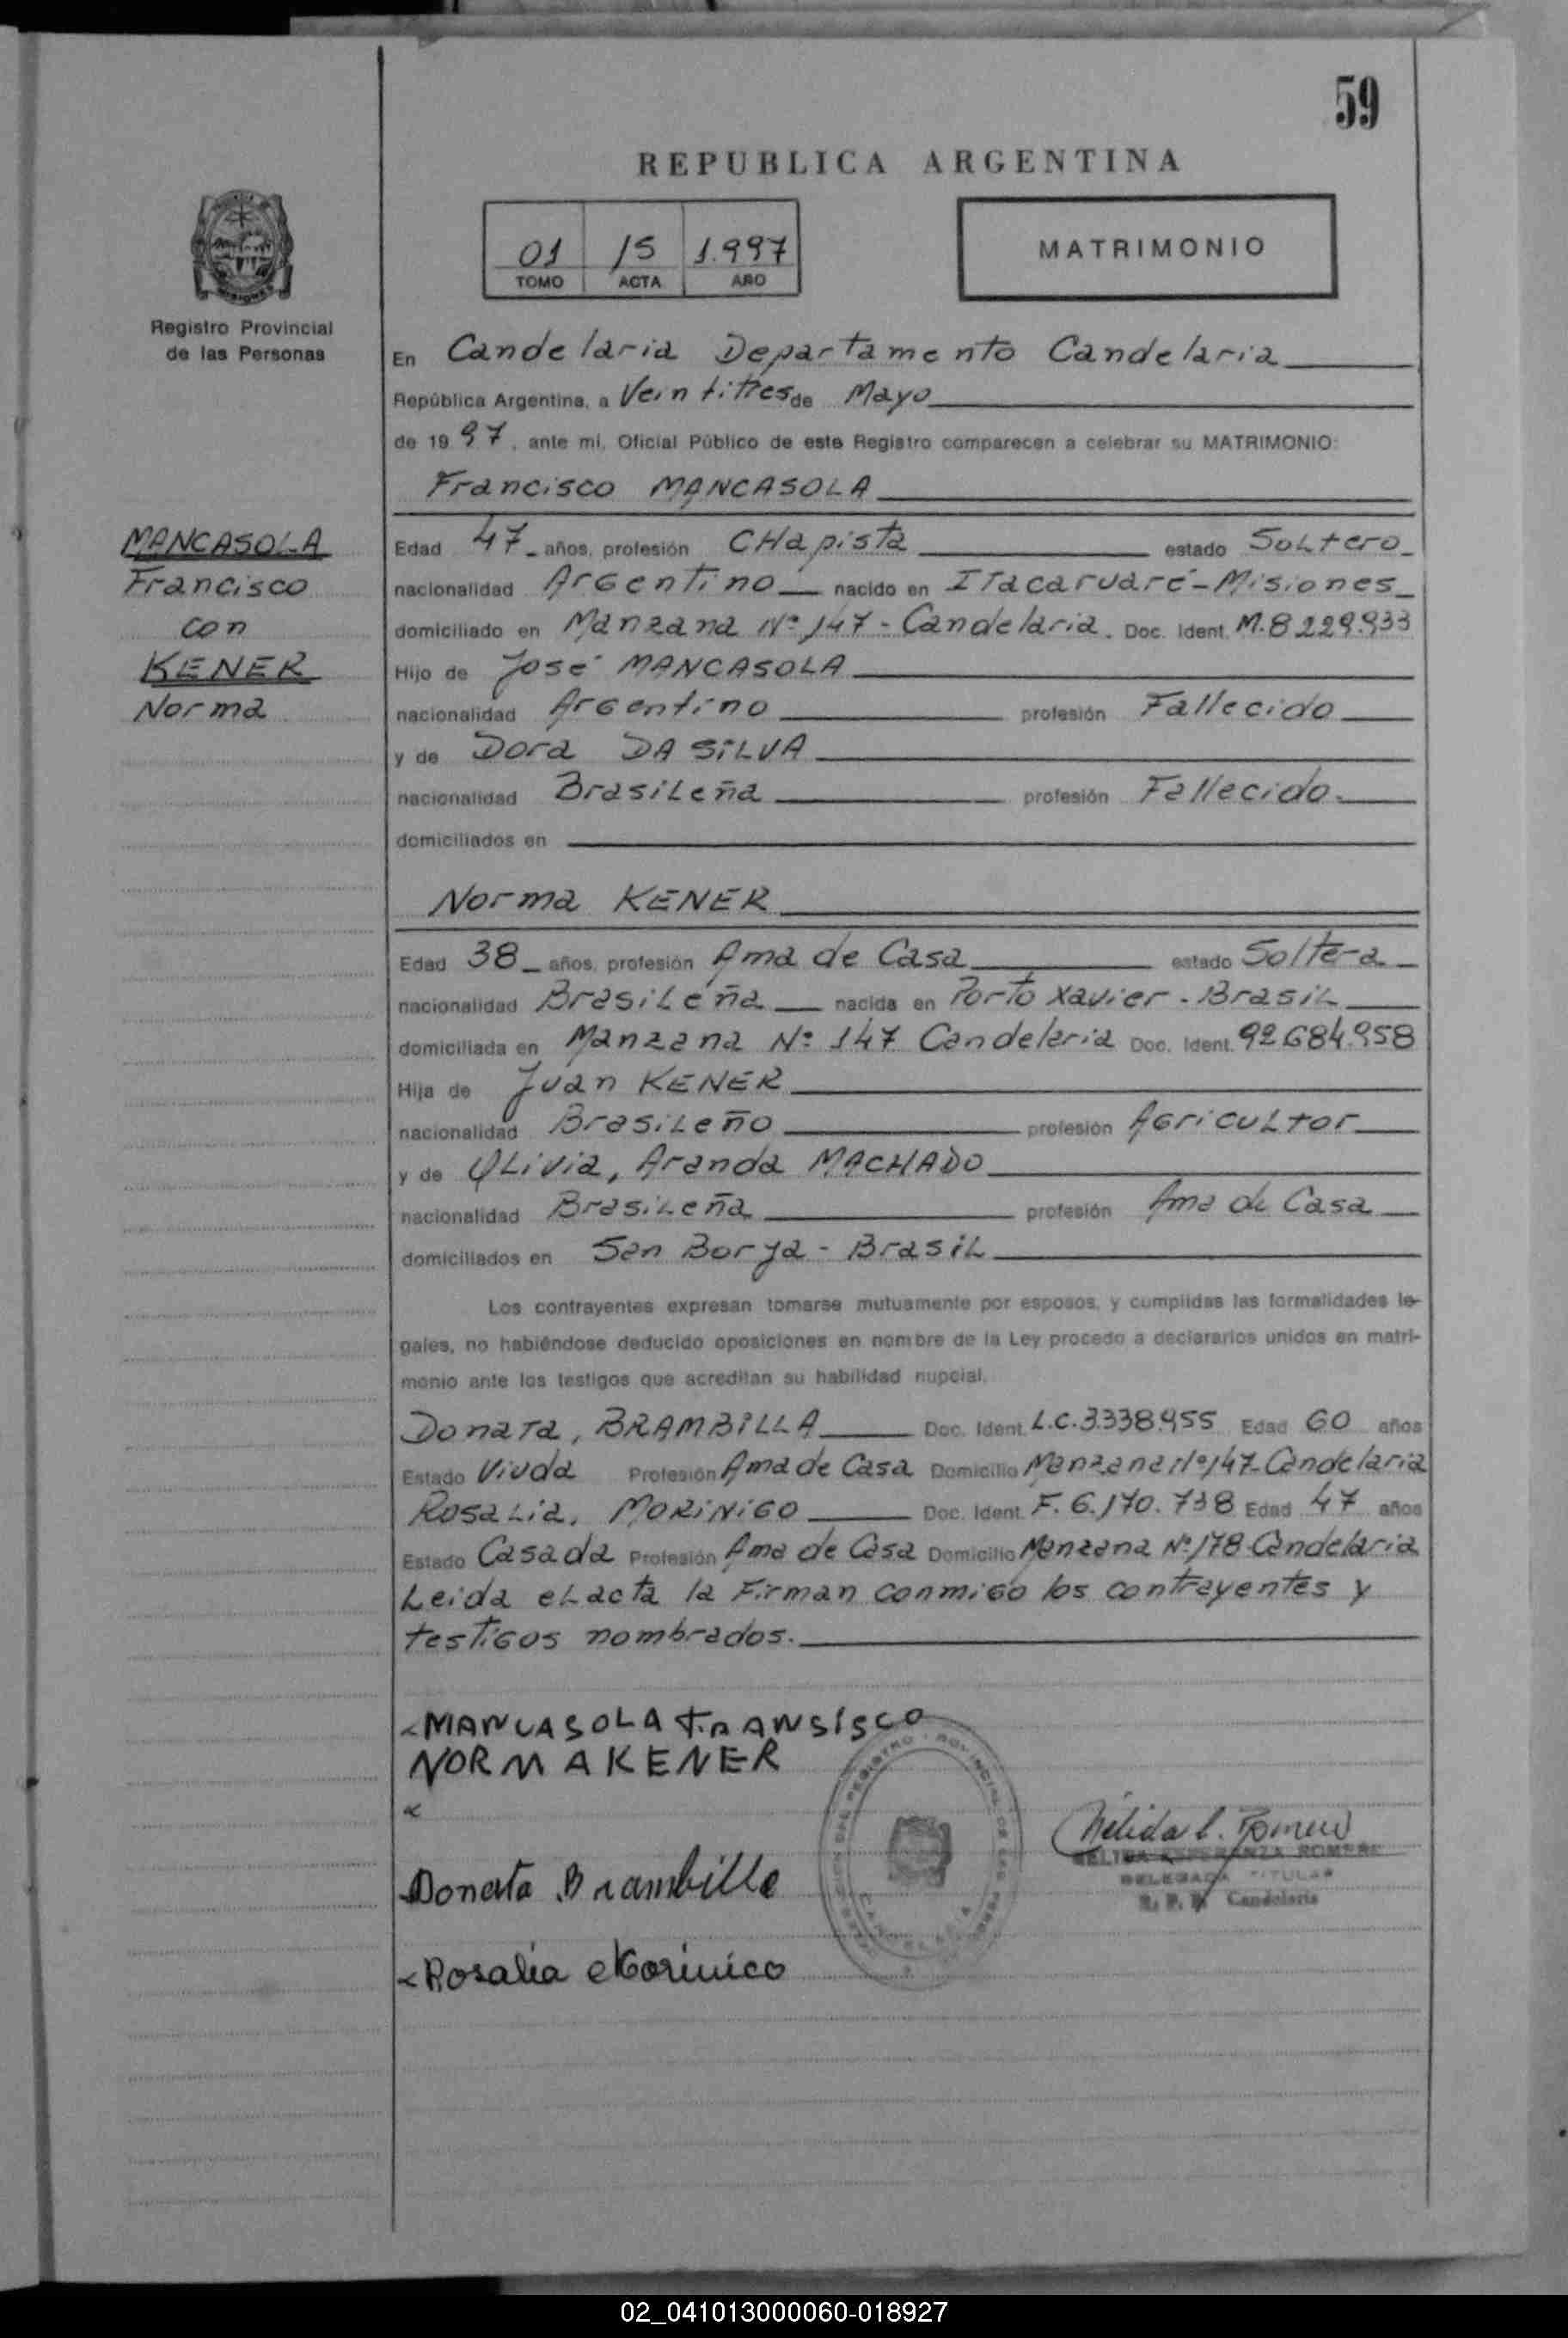 59
REPUBLICA ARGENTINA
01 15 1.997
TOMO ACTA AÑO
MATRIMONIO
Registro Provincial
de las Personas
En Candelaria Departamento Candelaria
República Argentina, a Veintitres de Mayo
de 19 97, ante mi, Oficial Público de este Registro comparecen a celebrar su MATRIMONIO:
Francisco MANCASOLA
MANCASOLA
Francisco
con
KENER
Norma
Edad 47 años, profesión CHapista estado Soltero
nacionalidad Argentino nacido en Itacaruaré - Misiones
domiciliado en Manzana Nº 147 - Candelaria. Doc. Ident. M. 8229.933
Hijo de José MANCASOLA
nacionalidad Argentino profesión Fallecido
y de Dora DA SILVA
nacionalidad Brasileña profesión Fallecido.
domiciliados en
Norma KENER
Edad 38 años, profesión Ama de Casa estado Soltera
nacionalidad Brasileña nacida en Porto Xavier - Brasil
domiciliada en Manzana Nº 147 Candelaria Doc. Ident. 92.684.958
Hija de Juan KENER
nacionalidad Brasileño profesión Agricultor
y de Olivia, Aranda MACHADO
nacionalidad Brasileña profesión Ama de Casa
domiciliados en San Borya - Brasil
Los contrayentes expresan tomarse mutuamente por esposos, y cumplidas las formalidades le-
gales, no habiéndose deducido oposiciones en nombre de la Ley procedo a declararlos unidos en matri-
monio ante los testigos que acreditan su habilidad nupcial.
Donata, BRAMBILLA Doc. Ident. L.C. 3.338.955 Edad 60 años
Estado Viuda Profesión Ama de Casa Domicilio Manzana Nº 147 - Candelaria
Rosalia, MORINIGO Doc. Ident. F. 6.170.738 Edad 47 años
Estado Casada Profesión Ama de Casa Domicilio Manzana Nº 178 - Candelaria
Leida el acta la Firman conmigo los contrayentes y
testigos nombrados.
MANCASOLA FRANSISCO
NORMA KENER
Donata Brambilla
Rosalia Morinico
Nélida E. Romero
NELIDA ESPERANZA ROMERO
DELEGADA TITULAR
R. P. P. Candelaria
02_041013000060-018927